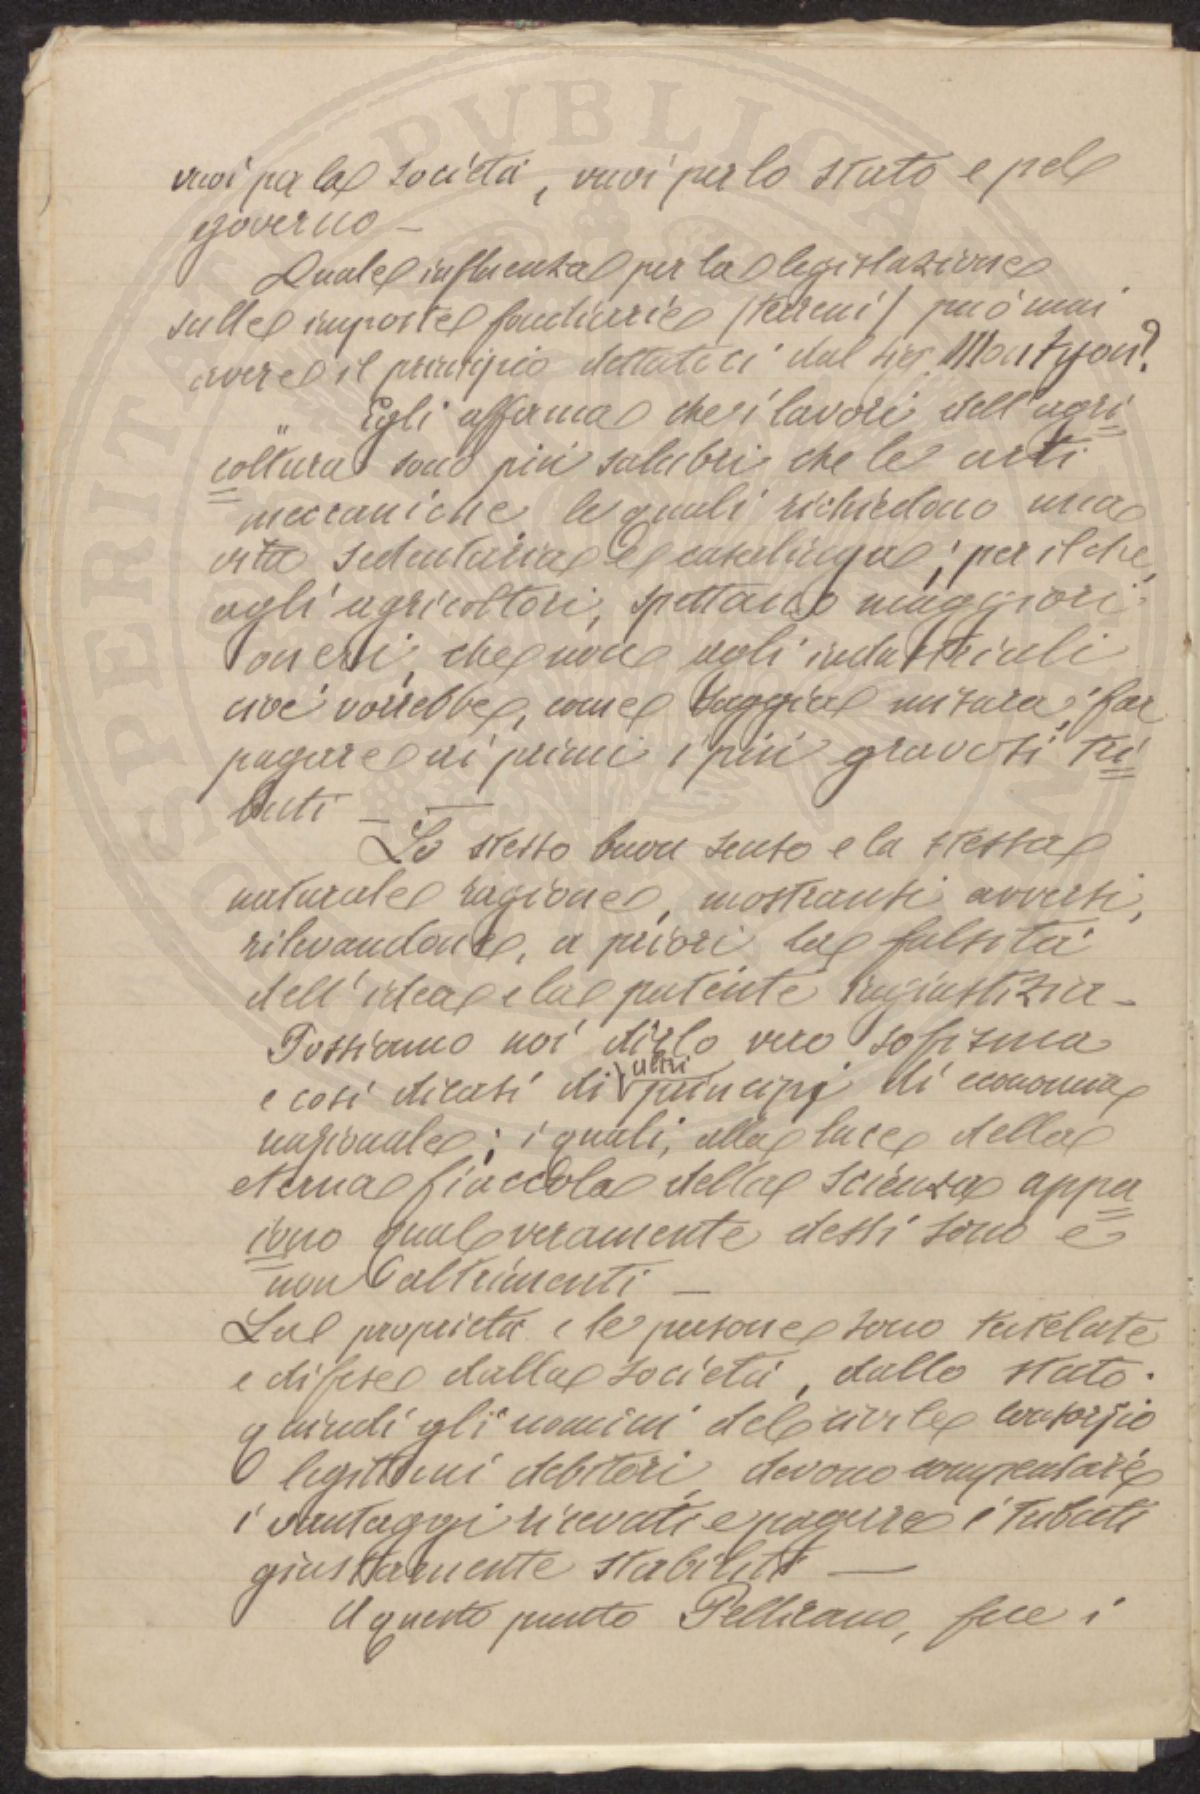 vuoi per la società, vuoi per lo stato e pel
governo —
Quale influenza per la legislazione
sulle imposte fondiarie (terreni) può mai
avere il principio dettatoci dal sig. Montyon?
Egli afferma che i lavori dell'agri
coltura sono più salubri che le arti
meccaniche le quali richiedono una
vita sedentaria e casalinga; per il che,
agli agricoltori, spettano maggiori
oneri, che non agli industriali
cioè vorrebbe, come saggia misura, far
pagare ai primi i più gravosi tri
buti —
Lo stesso buon senso e la stessa
naturale ragione, mostransi avversi,
rilevandone, a priori la falsità
dell'idea e la patente ingiustizia —
Possiamo noi dirlo vero sofisma
e così dicasi di altri principi di economia
nazionale; i quali, alla luce della
eterna fiaccola della scienza appa
iono quale veramente dessi sono e
non altrimenti —
La proprietà e le persone sono tutelate
e difese dalla società, dallo stato.
quindi gli uomini del civile consorzio
legittimi debitori, devono compensare
i vantaggi ricevuti e pagare i tributi
giustamente stabiliti —
A questo punto Pellicano, fece i
PROSPERITATI PUBLICAE